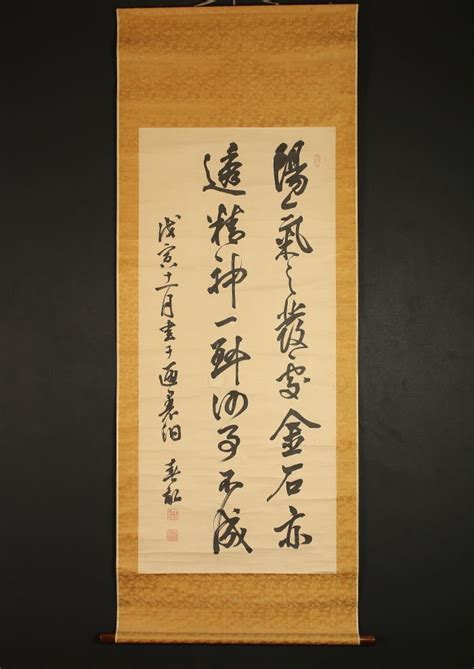 陽氣之發處金石亦
透精神一到何事不成
戊寅十一月書于
春畝